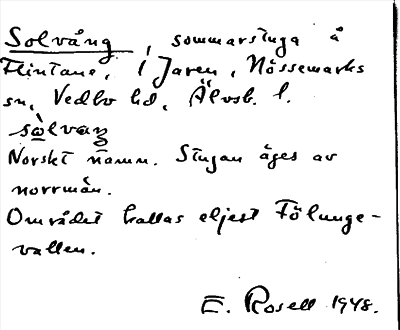 Solvång, sommarstuga å
Flintane, i Jaren, Nössemarks
sn, Vedbo hd, Älvsb. l.
sòlvaŋ
Norskt namn. Stugan äges av
norrmän.
Området kallas eljest Fölunge-
vallen.
E. Rosell 1948.